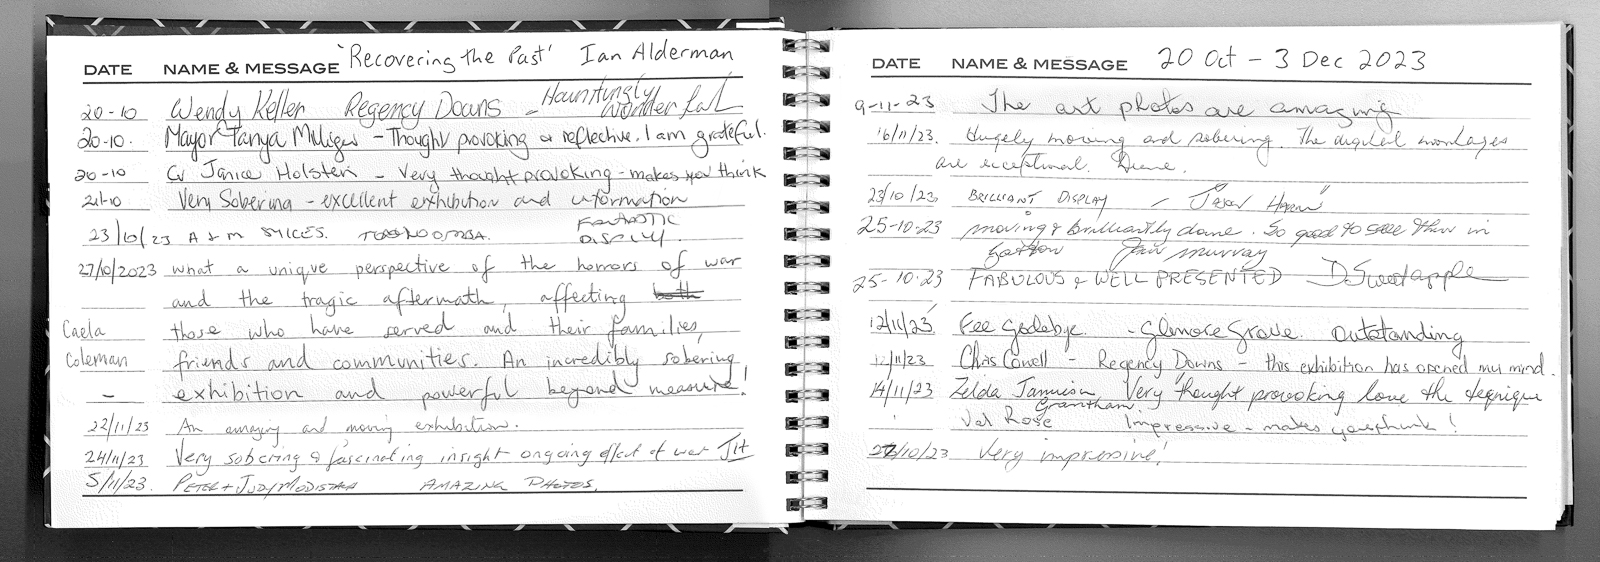 'Recovering the Past' Ian Alderman
DATE NAME & MESSAGE
20-10 Wendy Keller Regency Downs - Hauntingly
wonderful
20-10. Mayor Tanya Milligan - Thought provoking & reflective. I am grateful.
20-10 Cr Janice Holstein - Very thought provoking - makes you think
21-10 Very Sobering - excellent exhibition and information
23/10/23 A & M TOOWOOMBA. FANTASTIC
DISPLAY.
27/10/2023 what a unique perspective of the horrors of war
and the tragic aftermath, affecting both
Caela those who have served and their families,
Coleman friends and communities. An incredibly sobering
- exhibition and powerful beyond measure!
22/11/23 An amazing and moving exhibition.
24/11/23 Very sobering & fascinating insight ongoing effect of war
5/11/23. PETER + JUDY AMAZING PHOTOS.
20 Oct - 3 Dec 2023
DATE NAME & MESSAGE
9-11-23 The art photos are amazing
16/11/23. Hugely moving and sobering. The digital montages
are exceptional.
23/10/23, BRILLIANT DISPLAY
25-10-23 moving & brilliantly done. So good to see them in
Gatton Jan Murray
25-10-23 FABULOUS & WELL PRESENTED D Sweetapple
12/11/23 Fee - Glenore Grove. Outstanding
11/23 Chris Cowell - Regency Downs - this exhibition has opened my mind.
14/11/23 Zelda Jamieson Very thought provoking love the tequnique
Grantham.
Val Rose Impressive - makes you think!
27/10/23 Very impressive!